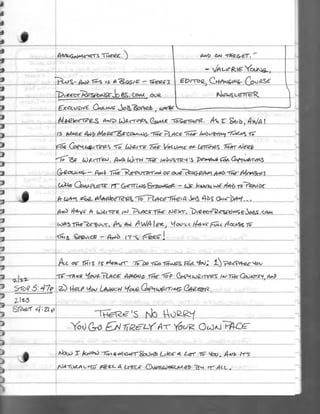 ASSIGNMENTS THERE.)
AND ON TARGET."
- VALERIE YOUNG,
EDITOR, CHANGING COURSE
NEWSLETTER
PLUS - AND THIS IS A BIGGIE - THERE'S
DIRECTRESPONSEJOBS.COM, OUR
EXCLUSIVE ONLINE JOB BOARD, WHERE
MARKETERS AND WRITERS COME TOGETHER. AS I SAID, AWAI
IS MORE AND MORE BECOMING THE PLACE THAT INDUSTRY TURNS TO
FOR COPYWRITERS TO WRITE THE VOLUME OF LETTERS THAT NEED
TO BE WRITTEN. AND WITH THE INDUSTRY'S DEMAND FOR COPYWRITERS
GROWING - AND THE REPUTATION OF OUR PROGRAM AND THE MEMBERS
WHO COMPLETE IT GETTING STRONGER - WE KNEW WE HAD TO PROVIDE
A WAY FOR MARKETERS TO PLACE THEIR JOB ADS ONE DAY...
AND HAVE A WRITER IN PLACE THE NEXT. DIRECTRESPONSEJOBS.COM
WAS THE RESULT. AS AN AWAIER, YOU'LL HAVE FULL ACCESS TO
THIS SERVICE - AND IT'S FREE!
ALL OF THIS IS MEANT TO DO TWO THINGS FOR YOU: 1) PREPARE YOU
2/22
TO TAKE YOUR PLACE AMONG THE TOP COPYWRITERS IN THE COUNTRY, AND
STOP 5:47P
2) HELP YOU LAUNCH YOUR COPYWRITING CAREER.
2/23
START 4:21P
THERE'S NO HURRY
YOU GO ENTIRELY AT YOUR OWN PACE
NOW I KNOW THIS MIGHT SOUND LIKE A LOT TO YOU. AND IT'S
NATURAL TO FEEL A LITTLE OVERWHELMED BY IT ALL.